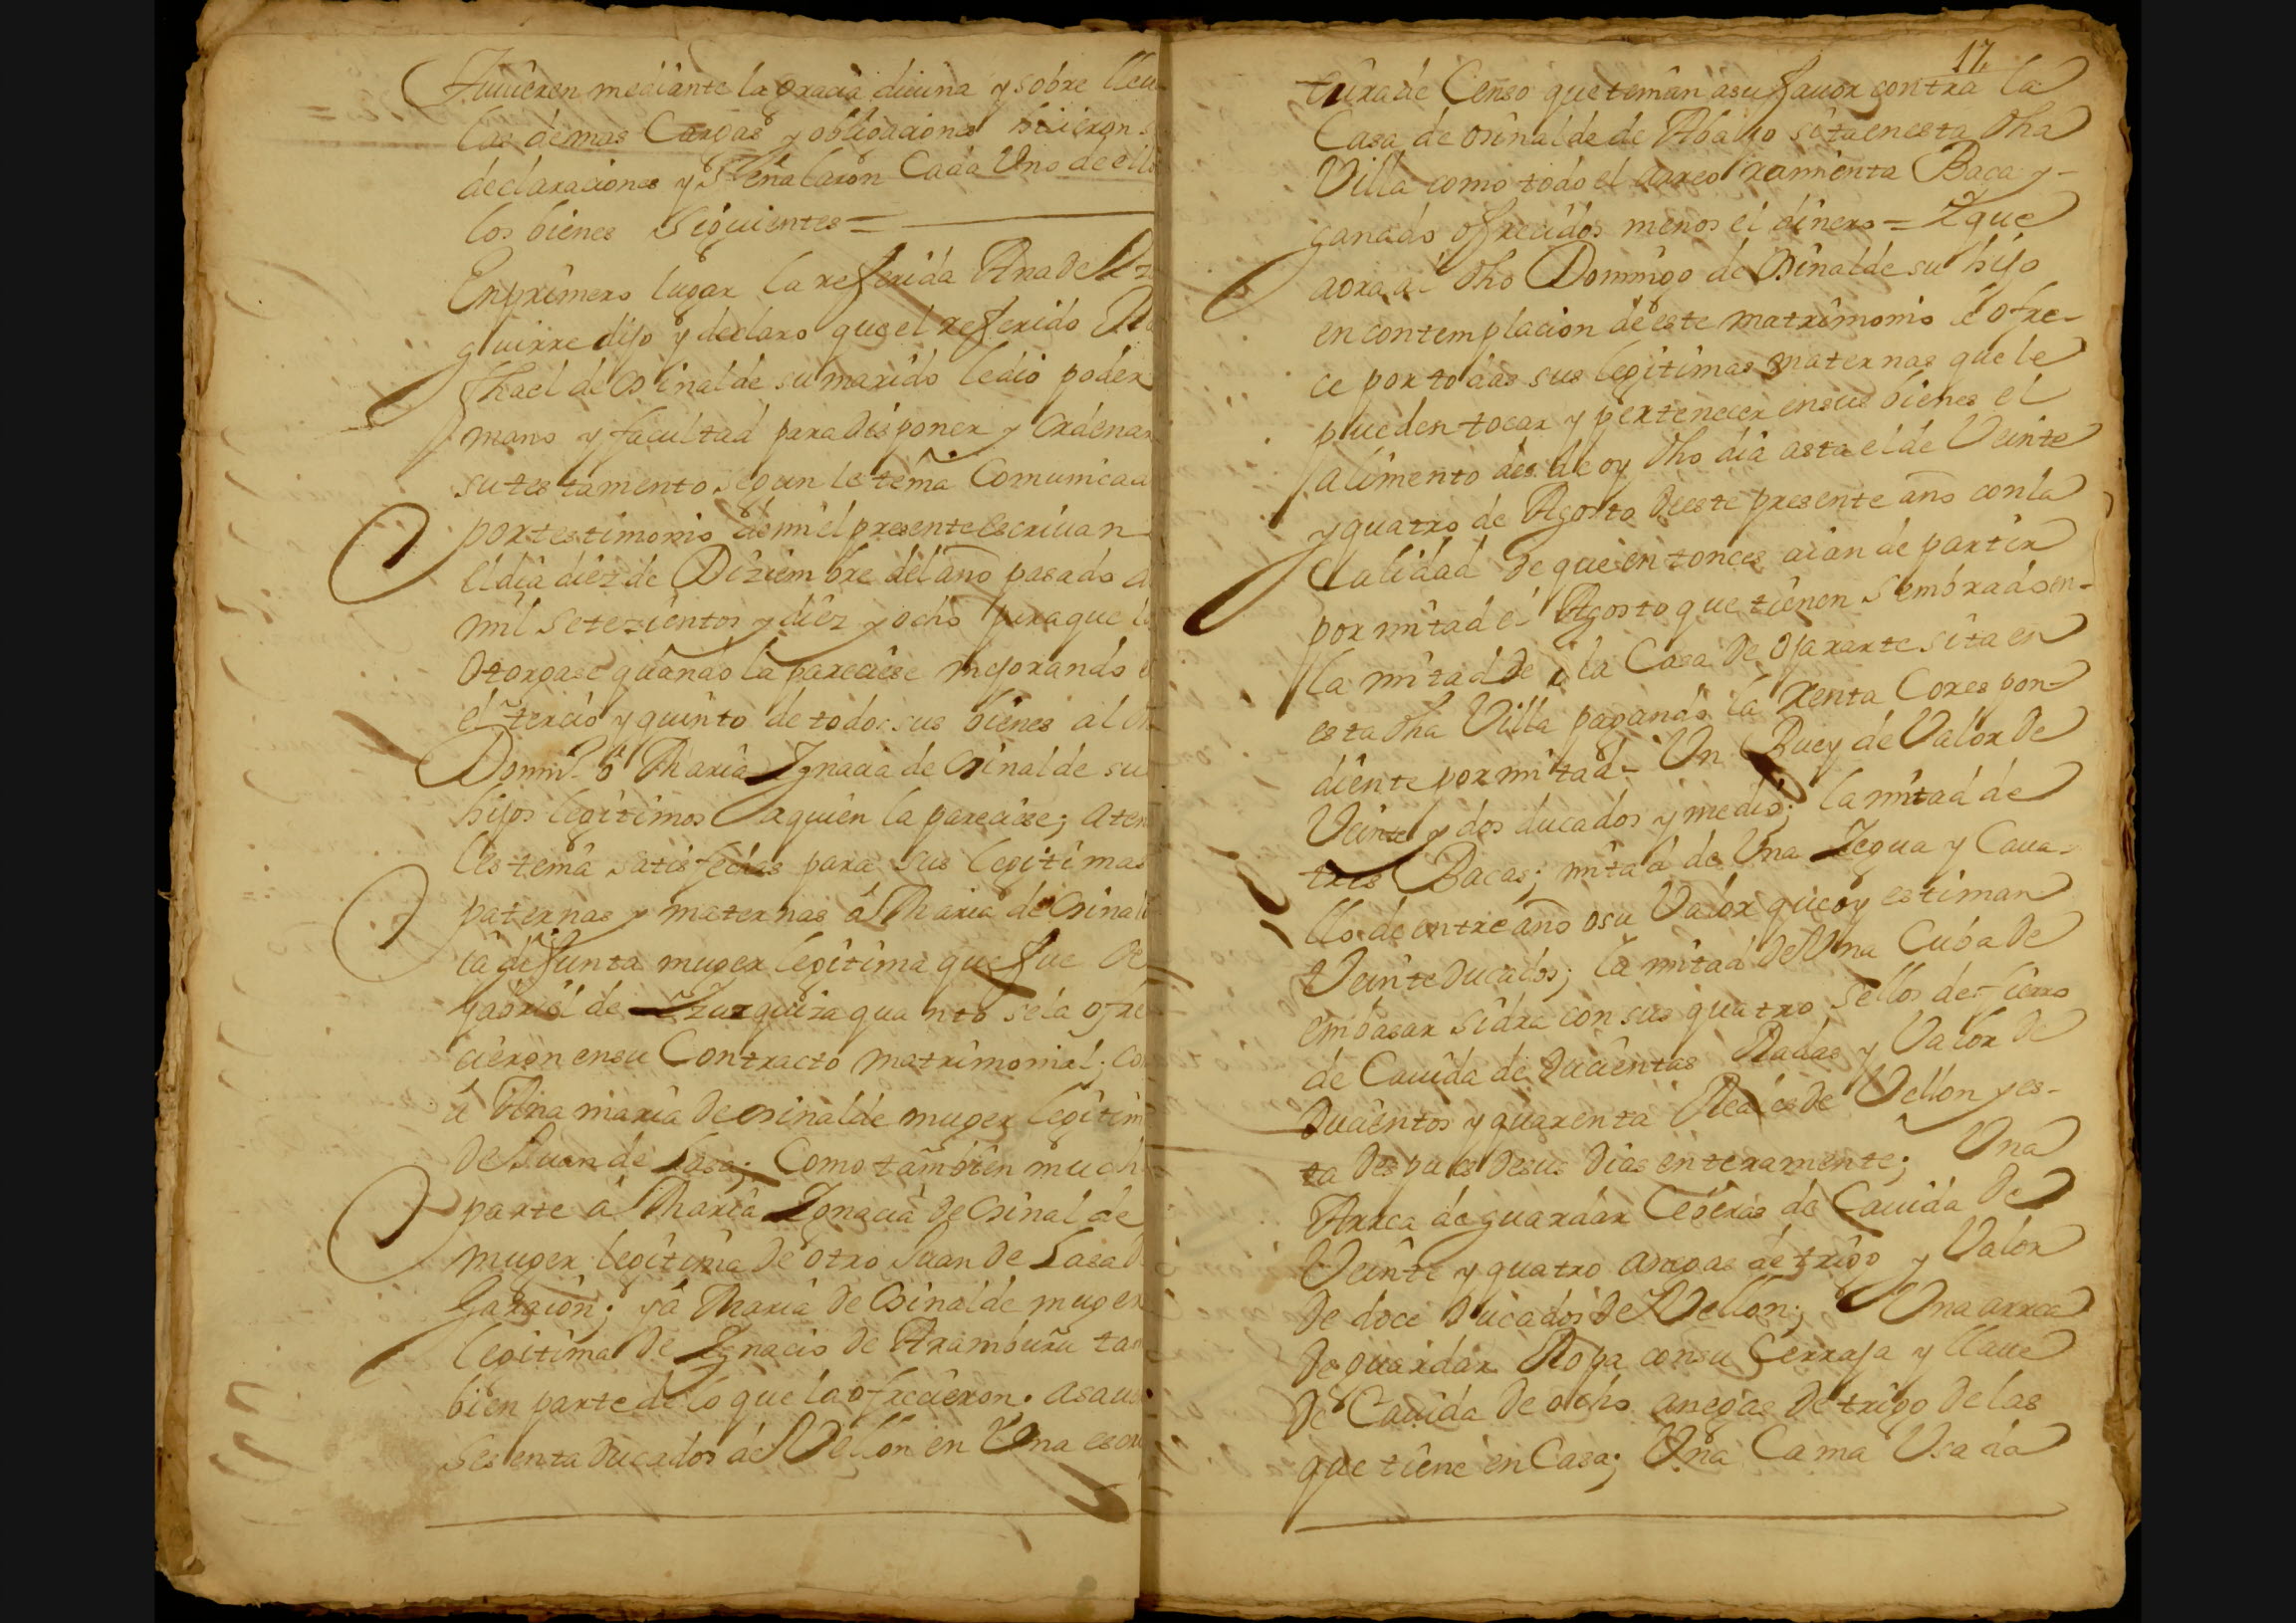 tuuieren mediante la gracia diuina y sobre lleu
las demas Cargas y obligaciones hicieron
declaraciones y Señalaron Cada Uno de ello
los bienes Siguientes =
En primero lugar la referida Ana de
guirre dijo y declaro que el referido
de Osinalde su marido le dio poder
mano y facultad para disponer y Ordenar
su testamento segun le tenia Comunicad
por testimonio de mi el presente escriuan
el dia diez de Diziembre del año pasado d
mil setezientos y diez y ocho para que lo
Otorgase quando la pareciese mejorando e
el tercio y quinto de todos sus bienes al
Domingo o Maria Ygnacia de Osinalde sus
hijos legitimos a quien la pareciese; aten
les tenia satisfechas para sus legitimas
paternas y maternas á Maria de Osinald
ia difunta muger legitima que fue de
gabriel de Yzurquiza quanto se la ofre
cieron en su Contracto matrimonial; co
á Ana maria de Osinalde muger legitim
de Juan de Lasa; Como tambien much
parte á Maria Ygnacia de Osinalde
muger legitima de otro Juan de Lasa d
Garaion; y á Maria de Osinalde muger
legitima de Ygnacio de Aramburu tan
bien parte de lo que la ofrecieron. asaue
Sesenta ducados de Vellon en Una escri
17
tura de Censo que tenian a su fauor contra la
Casa de Osinalde de Abajo sita en esta dha
Villa como todo el arreo Baca y
ganado ofrecidos menos el dinero = Y que
aora al dho Domingo de Osinalde su hijo
en contemplacion de este matrimonio le ofre-
ce por todas sus legitimas maternas que le
pueden tocar y pertenecer en sus bienes el
alimento desde oy dho dia asta el de Veinte
y quatro de Agosto de este presente año con la
Calidad de que entonces aian de partir
por mitad el Agosto que tienen Sembrado en-
la mitad de la Casa de Ojararte sita en
esta dha Villa pagando la Renta Corespon-
diente por mitad = Un Buey de Valor de
Veinte y dos ducados y medio; la mitad de
tres Bacas; mitad de Una Yegua y Caua-
llo de entre año o su Valor que oy estiman
Veinte Ducados; la mitad de Una Cuba de
embasar sidra con sus quatro Sellos de fierro
de Cauida de Ducientas Radas y Valor de
Ducientos y quarenta Reales de Vellon y es-
ta despues de sus dias enteramente; Una
Arca de guardar Ceberas de Cauida de
Veinte y quatro anegas de trigo y Valor
de doce Ducados de Vellon; Una arca
de guardar Ropa con su Cerraja y llaue
de Cauida de ocho anegas de trigo de las
que tiene en Casa; Una Cama Usada